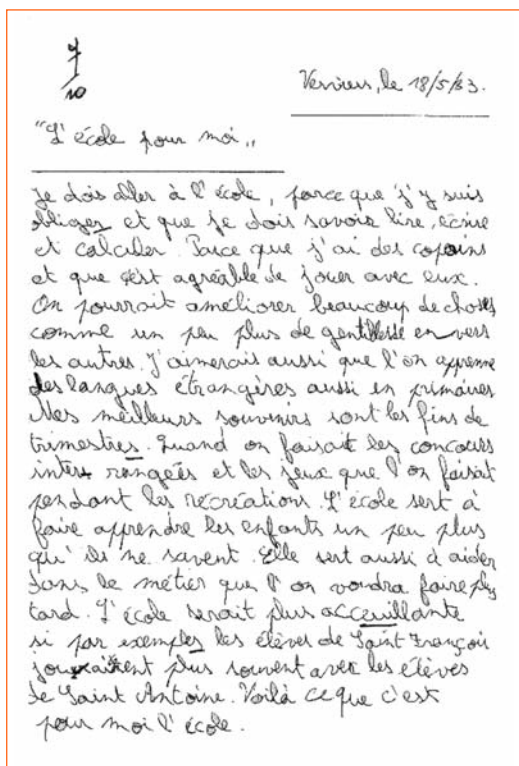 9/10
Verviers, le 18/5/83.
"L'école pour moi"
Je dois aller à l'école, parce que j'y suis
obligez et que je dois savoir lire, écrire
et calculer. Parce que j'ai des copains
et que c'est agréable de jouer avec eux.
On pourrait améliorer beaucoup de choses
comme un peu plus de gentillesse en vers
les autres. J'aimerais aussi que l'on apprenne
des langues étrangères aussi en primaires
Mes meilleurs souvenirs sont les fins de
trimestres. Quand on faisait les concours
inter rangées et les jeux que l'on faisait
pendant les récréations. L'école sert à
faire apprendre les enfants un peu plus
qu'ils ne savent. Elle sert aussi à aider
dans le métier que l'on voudra faire plus
tard. L'école serait plus acceuillante
si par exemples les élèves de Saint François
joueraient plus souvent avec les élèves
de Saint Antoine. Voilà ce que c'est
pour moi l'école.